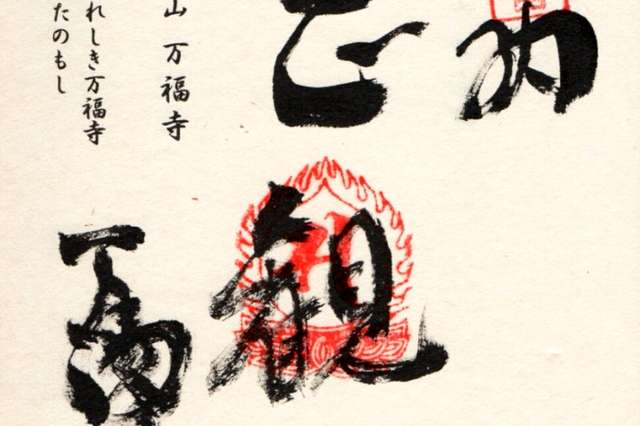 納
正観
山 万福寺
萬
れしき万福寺
たのもし